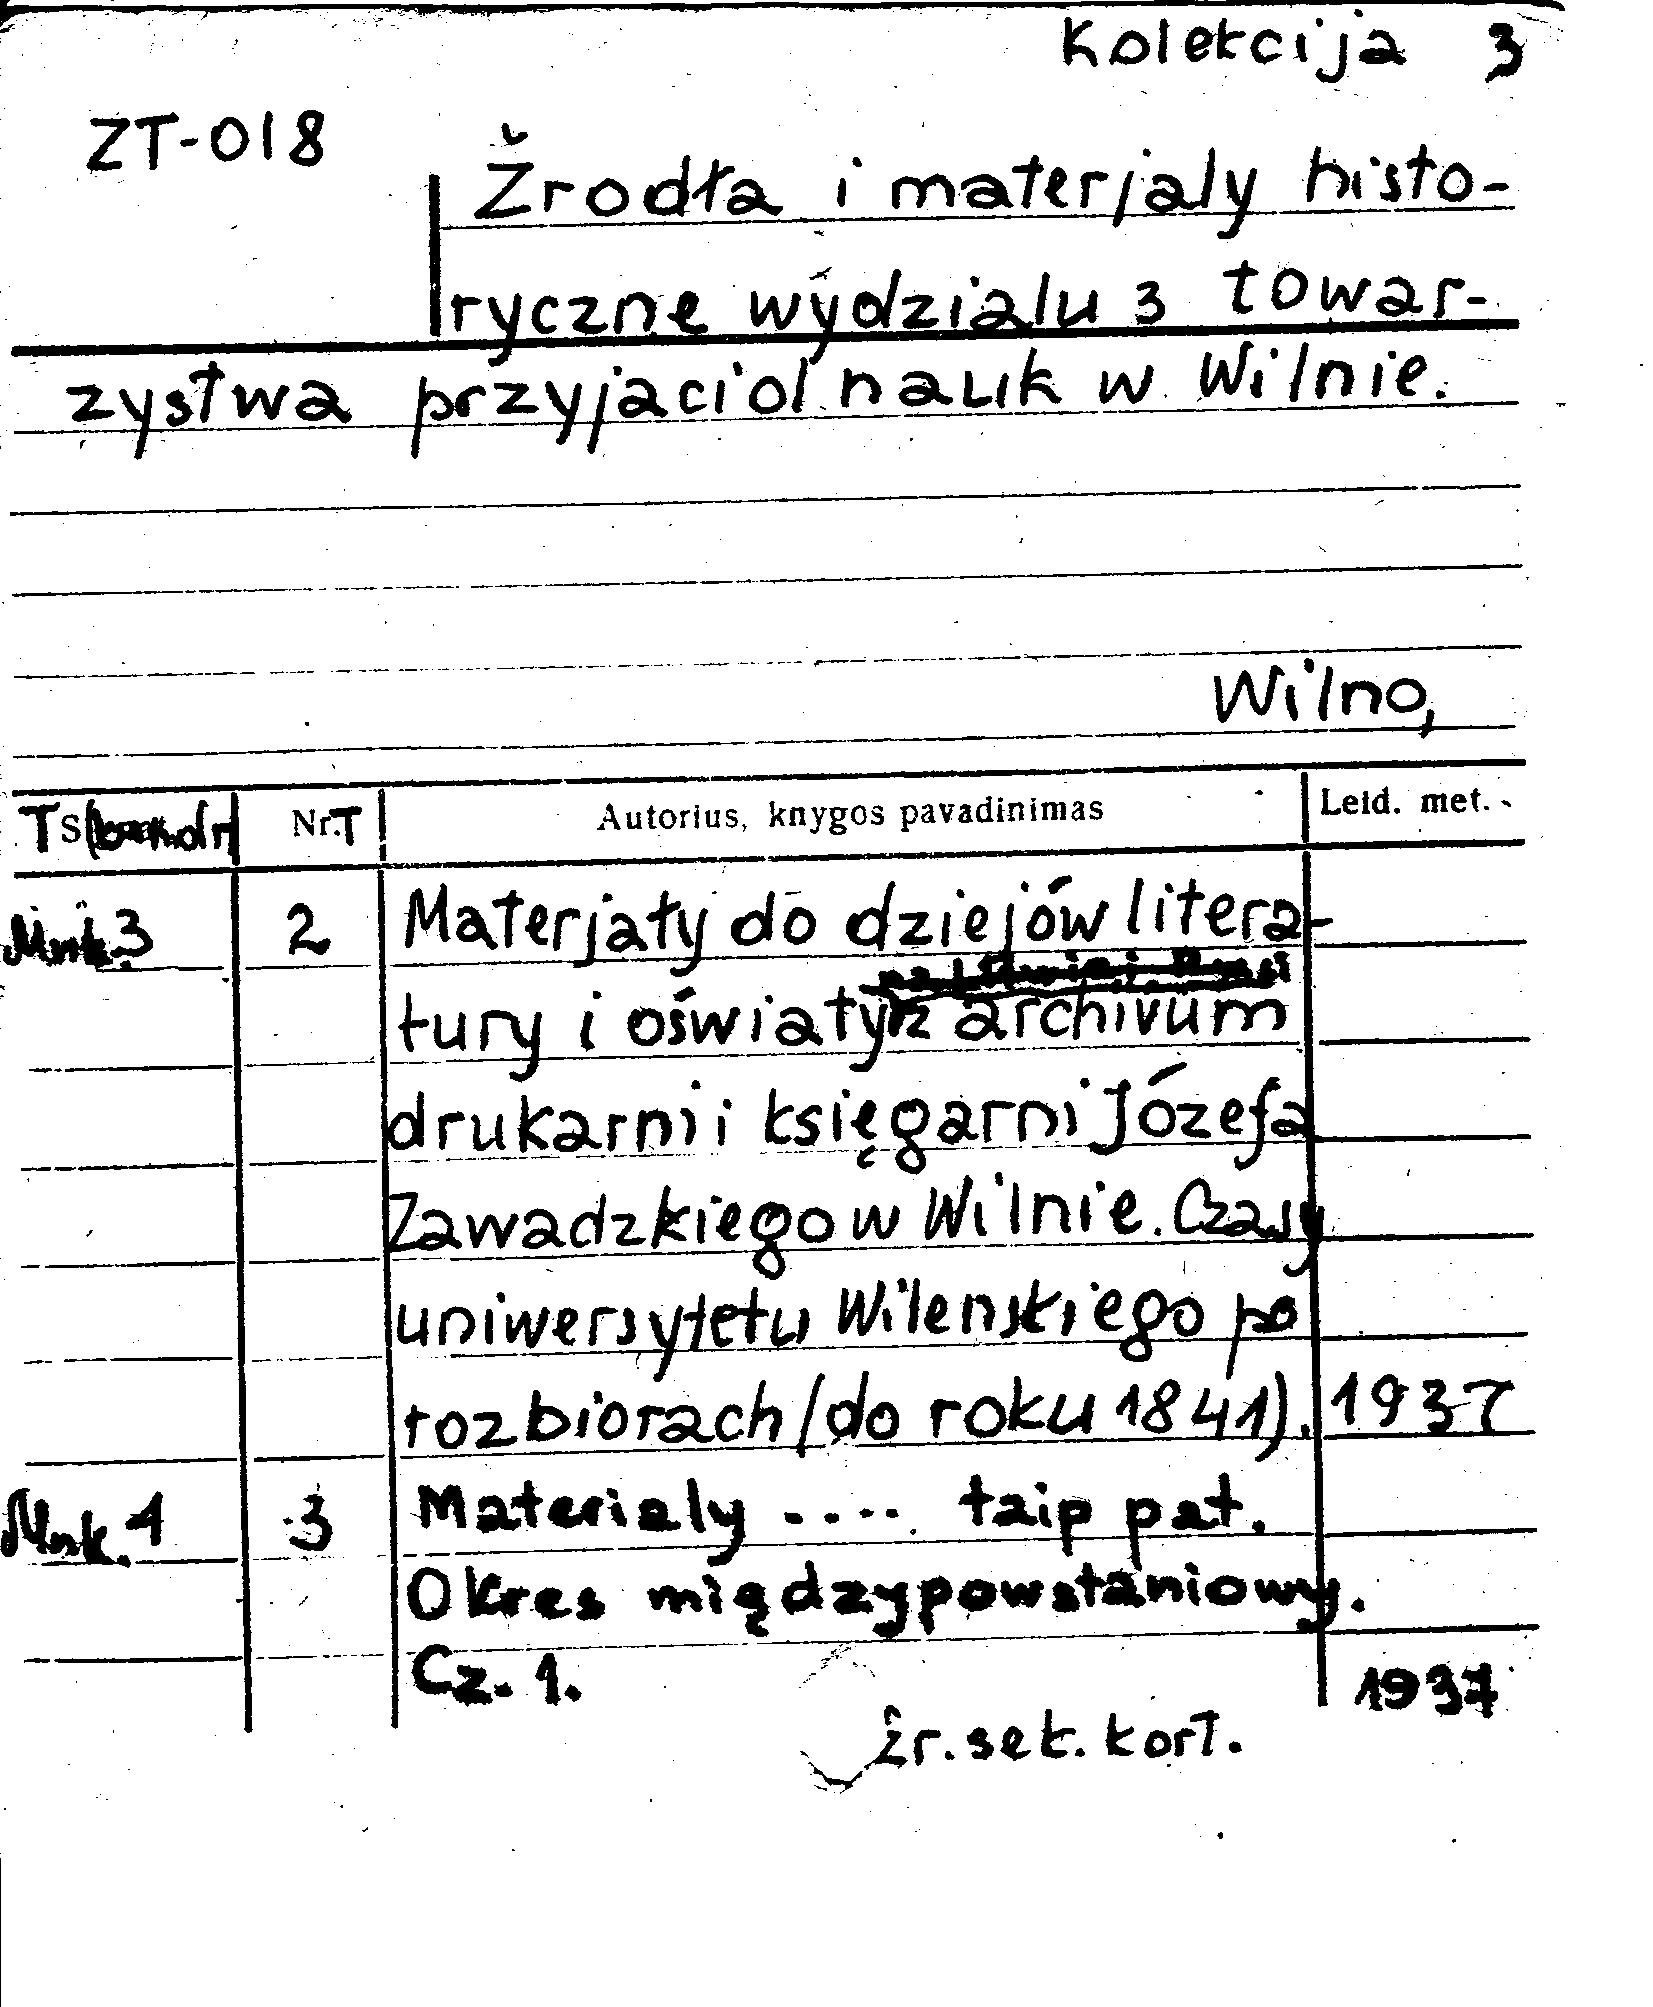 Kolekcija 3
ZT-018
Žrodła i materjaly histo-
ryczne wydzialu 3 towar-
zystwa przyjaciol nauk w Wilnie.
Wilno,
T S Nr. T Autorius, knygos pavadinimas Leid. met.
Mnk. 3 2 Materjały do dziejów litera-
tury i oświaty z archivum
drukarni i księgarni Józefa
Zawadzkiego w Wilnie. Czasy
uniwersytetu Wilenskiego po
rozbiorach /do roku 1841). 1937
Mnk. 1 3 Materialy .... taip pat.
Okres międzypowstaniowy.
Cz. 1. 1937
žr. sek. kort.